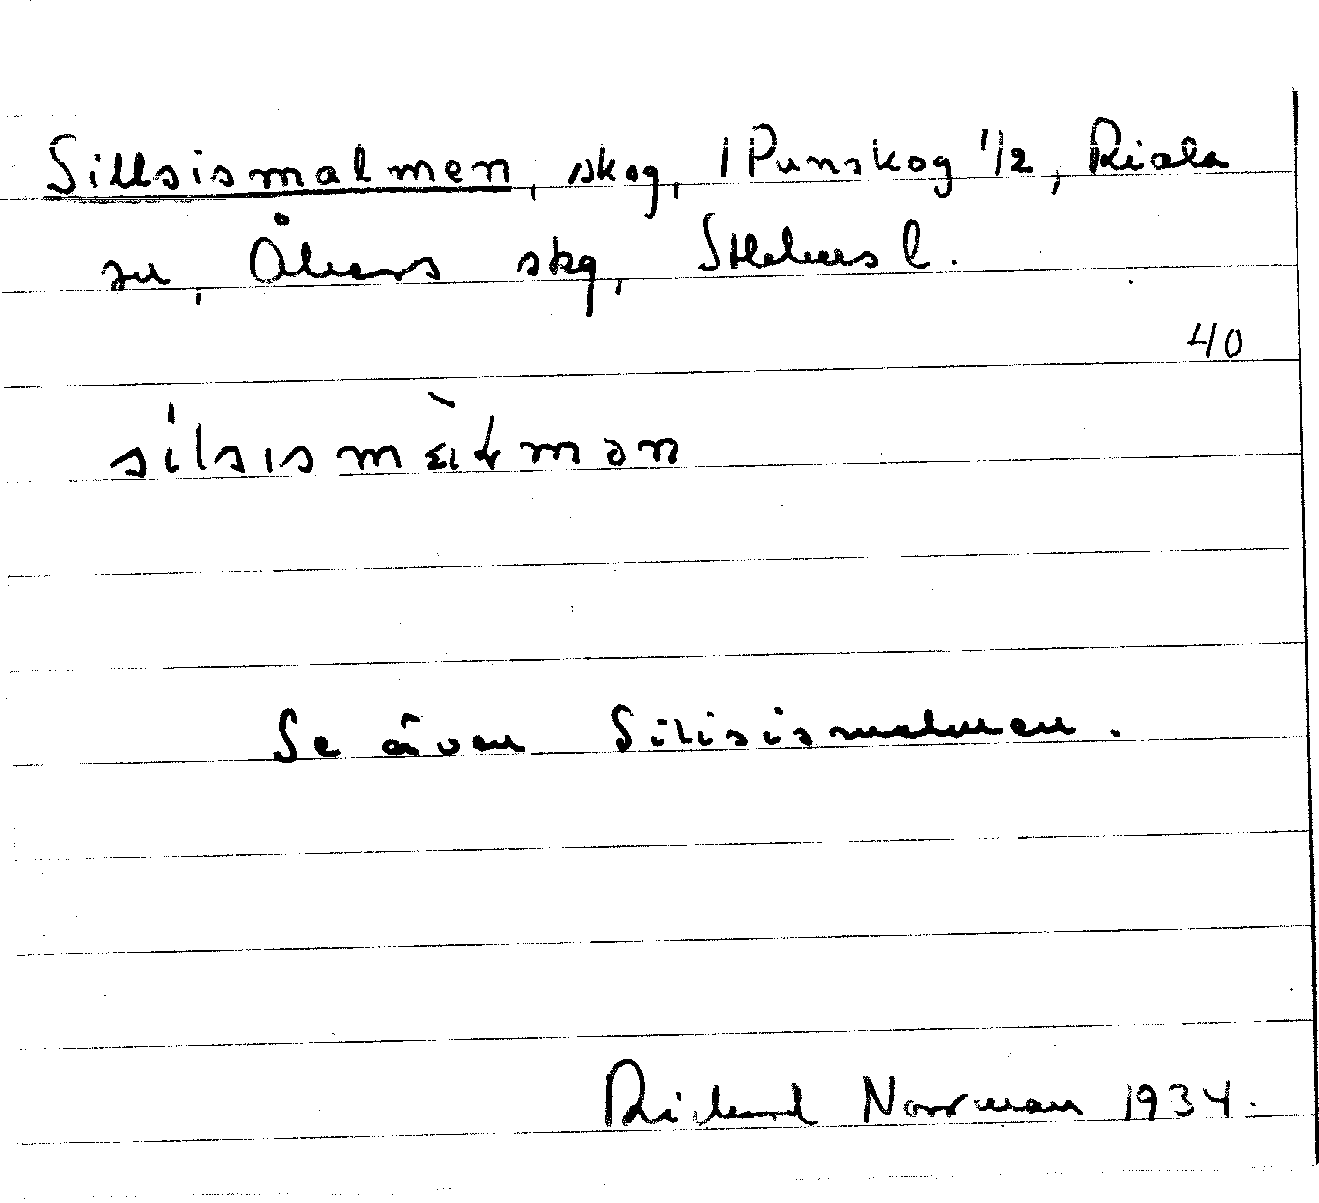 Sillsismalmen, skog, 1 Punskog 1/2, Riala
sn, Åkers skg, Sthlms l.
40
Se även Silisismalmen.
Richard Norrman 1934.